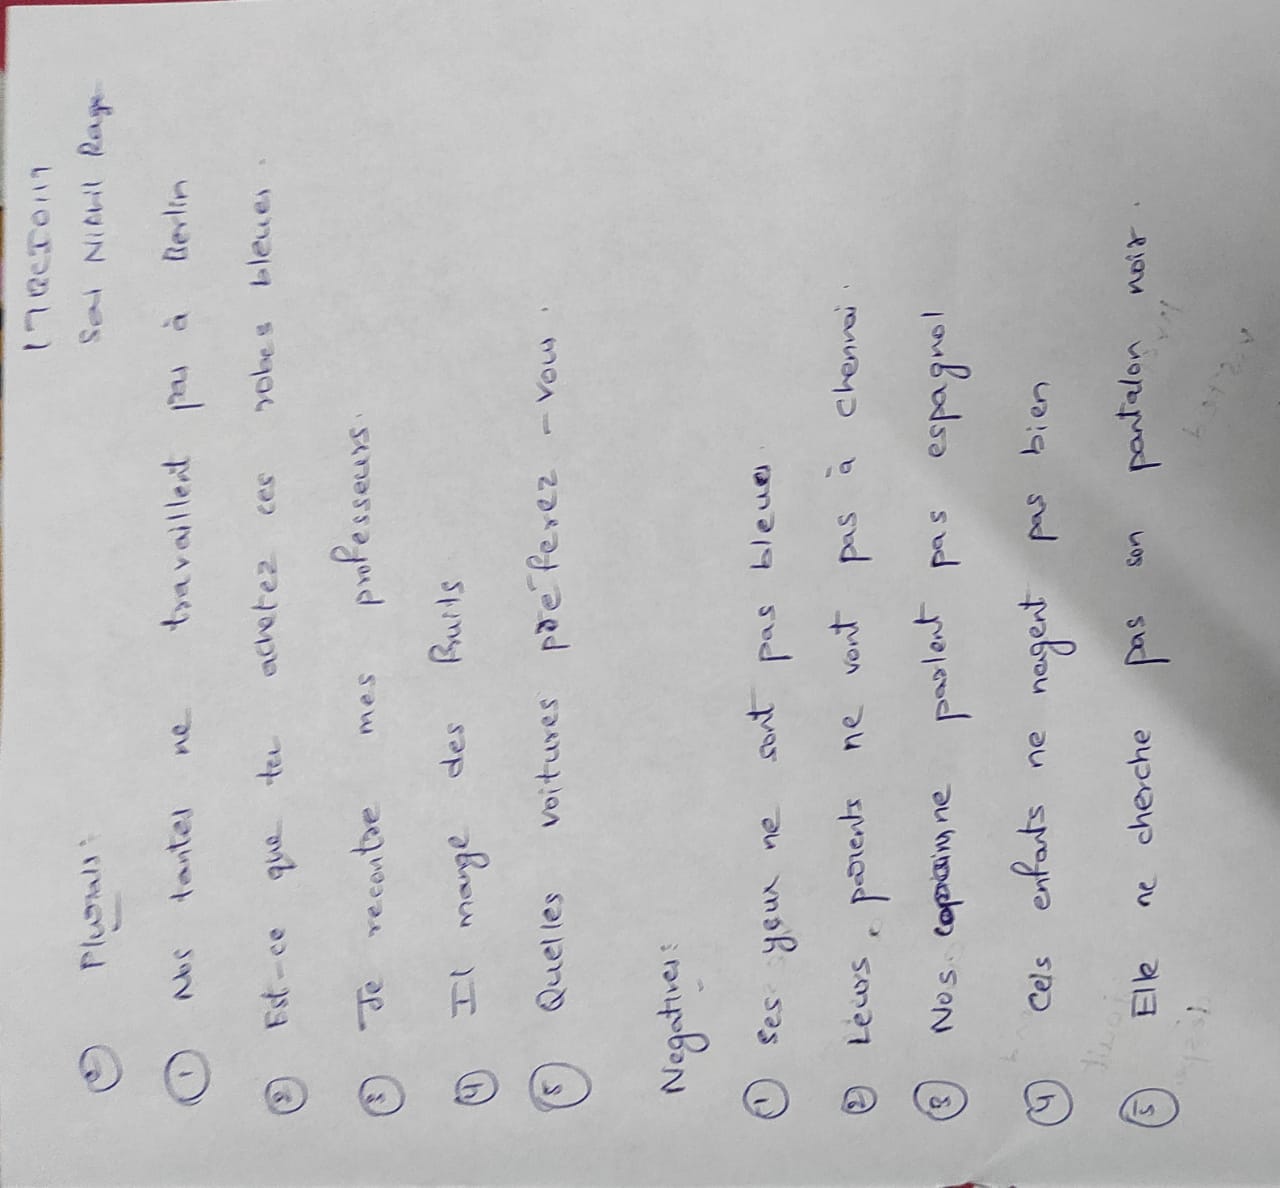 17BCI0119
Sai Nikhil Raga
Plurals:
① Nos tantes ne travaillent pas à Berlin
② Est-ce que tu achetez ces robes bleues.
③ Je recontre mes professeurs.
④ Il mange des fruits
⑤ Quelles voitures préferez-vous.
Negatives:
① Ses yeux ne sont pas bleues.
② Leurs parents ne vont pas à chennai.
③ Nos ne parlent pas espagnol
④ Cels enfants ne nagent pas bien
⑤ Elle ne cherche pas son pantalon noir.